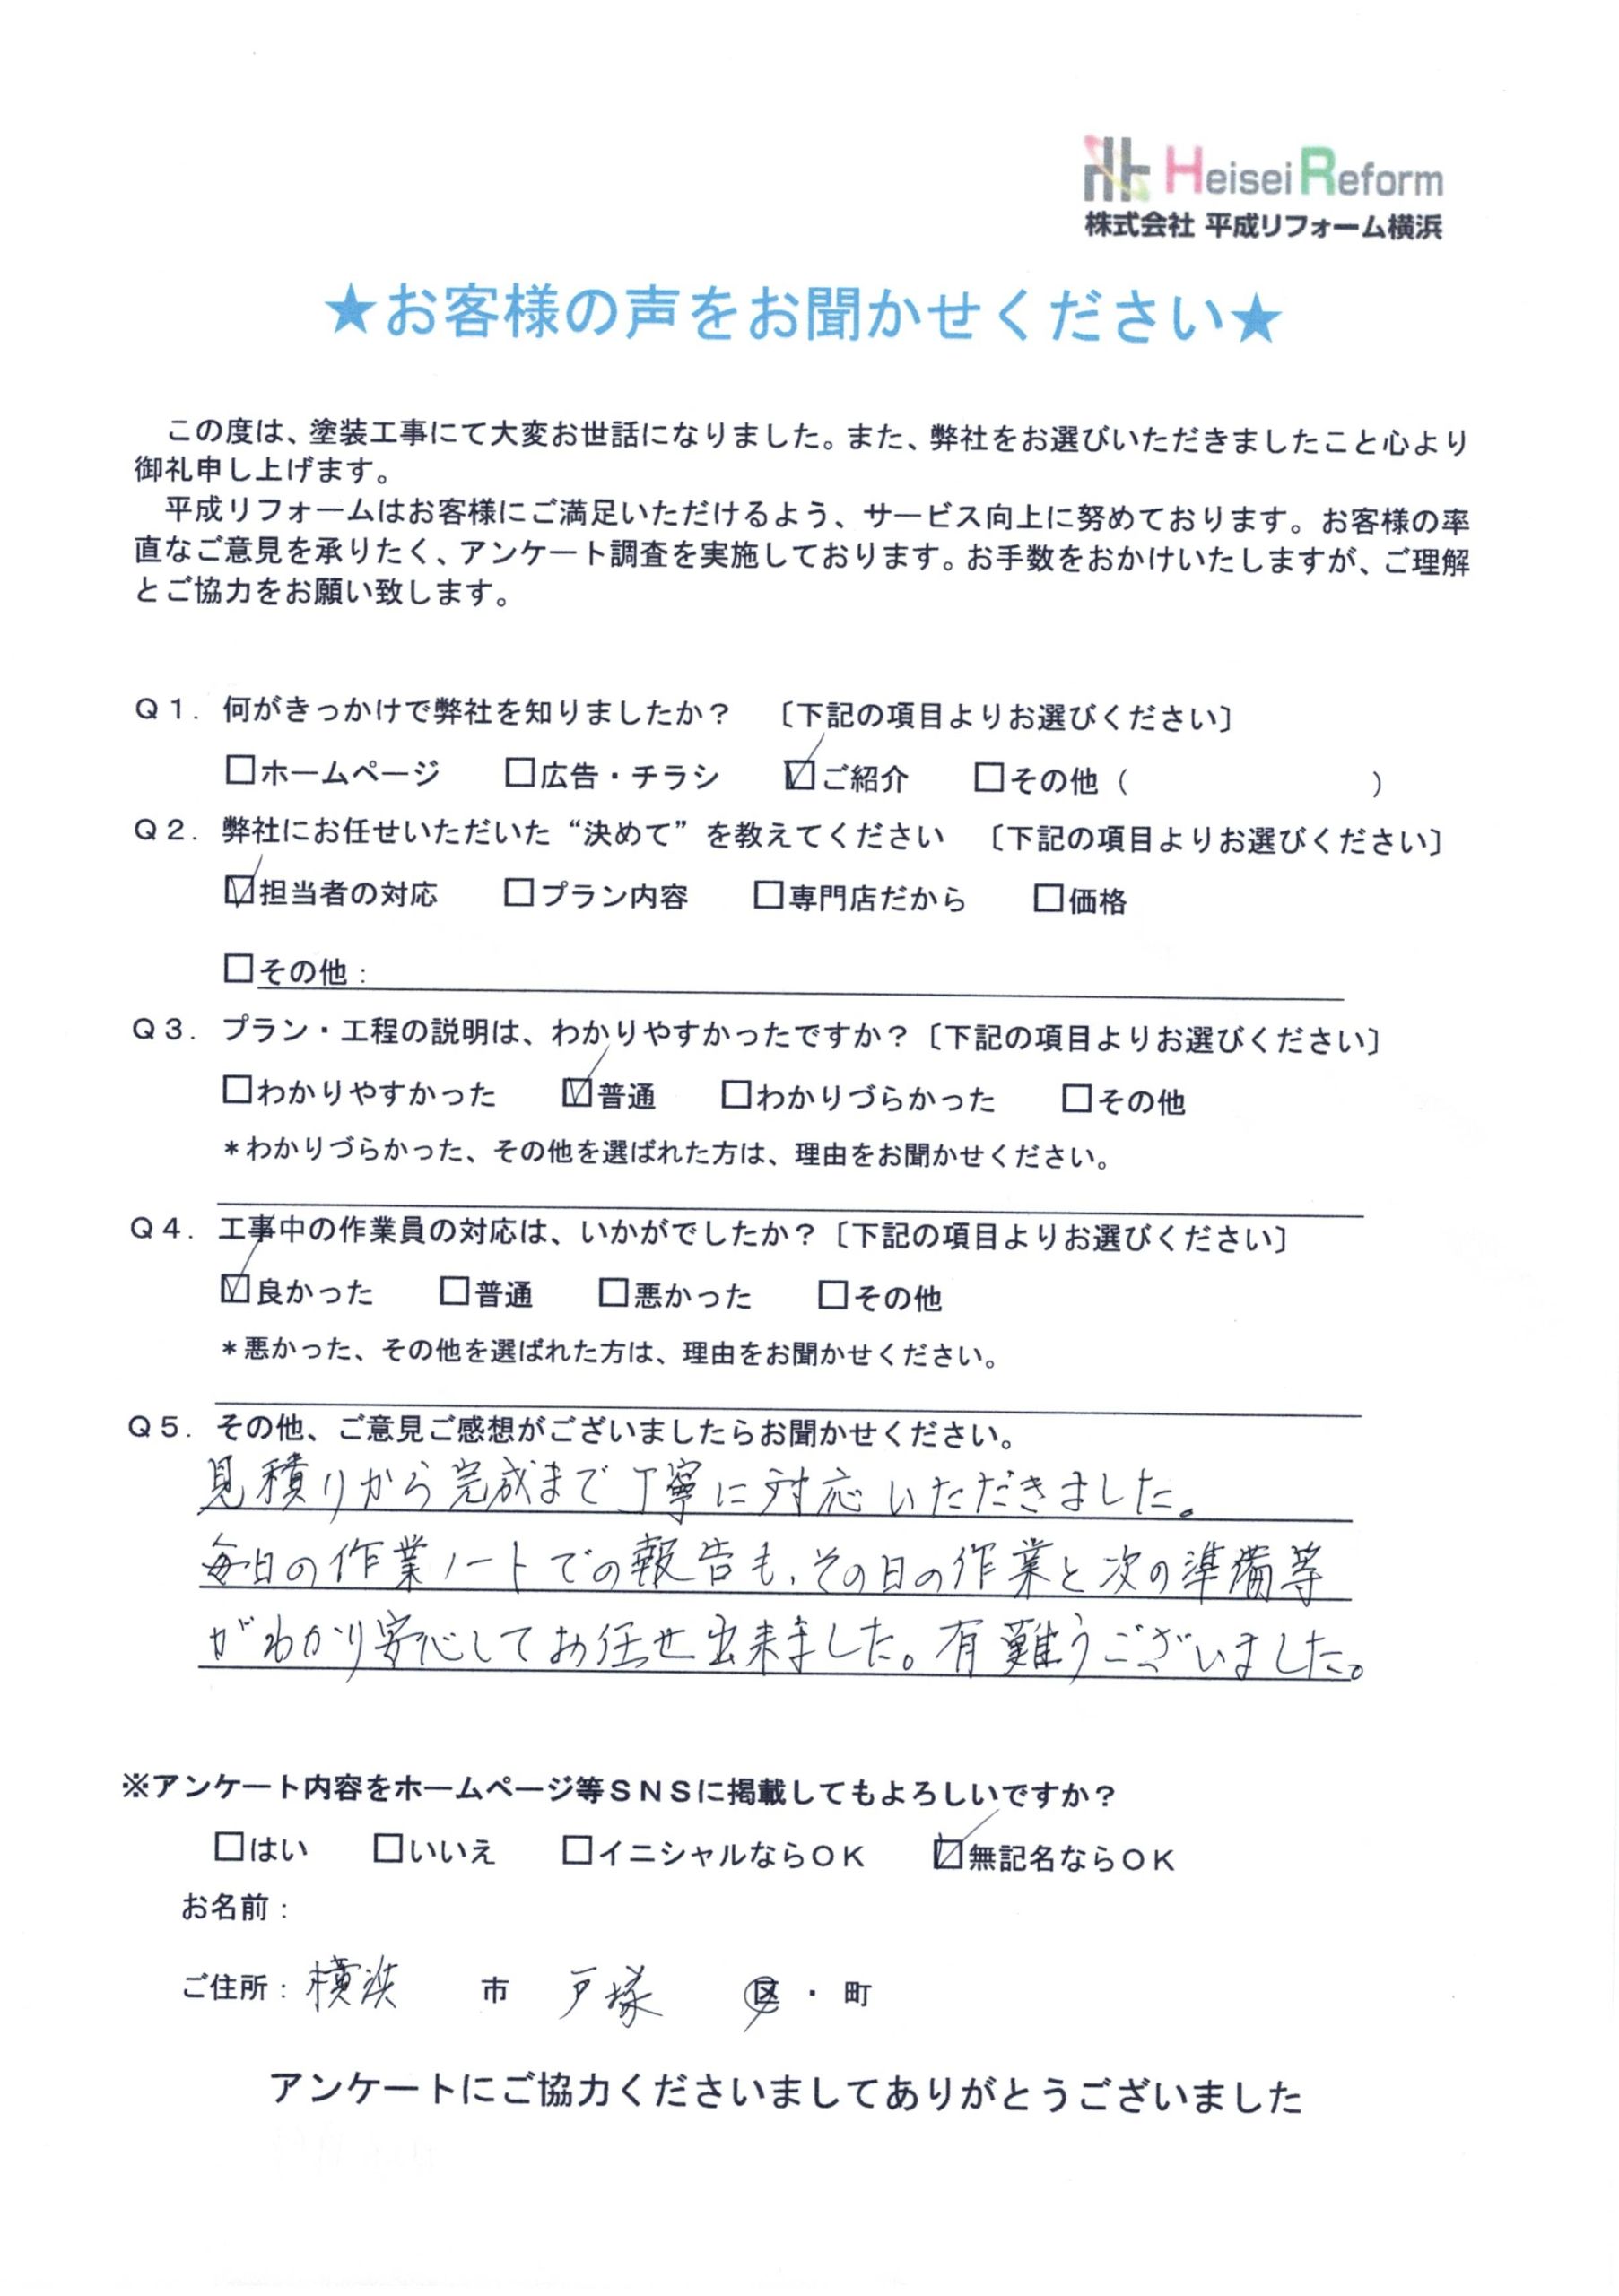 Heisei Reform
株式会社 平成リフォーム横浜
★お客様の声をお聞かせください★
この度は、塗装工事にて大変お世話になりました。また、弊社をお選びいただきましたこと心より
御礼申し上げます。
平成リフォームはお客様にご満足いただけるよう、サービス向上に努めております。お客様の率
直なご意見を承りたく、アンケート調査を実施しております。お手数をおかけいたしますが、ご理解
とご協力をお願い致します。
Q1. 何がきっかけで弊社を知りましたか？ 〔下記の項目よりお選びください〕
□ホームページ □広告・チラシ ☑ご紹介 □その他（ ）
Q2. 弊社にお任せいただいた“決めて”を教えてください 〔下記の項目よりお選びください〕
☑担当者の対応 □プラン内容 □専門店だから □価格
□その他：
Q3. プラン・工程の説明は、わかりやすかったですか？〔下記の項目よりお選びください〕
□わかりやすかった ☑普通 □わかりづらかった □その他
＊わかりづらかった、その他を選ばれた方は、理由をお聞かせください。
Q4. 工事中の作業員の対応は、いかがでしたか？〔下記の項目よりお選びください〕
☑良かった □普通 □悪かった □その他
＊悪かった、その他を選ばれた方は、理由をお聞かせください。
Q5. その他、ご意見ご感想がございましたらお聞かせください。
見積りから完成まで丁寧に対応いただきました。
毎日の作業ノートでの報告も、その日の作業と次の準備等
がわかり安心してお任せ出来ました。有難うございました。
※アンケート内容をホームページ等SNSに掲載してもよろしいですか？
□はい □いいえ □イニシャルならOK ☑無記名ならOK
お名前：
ご住所：横浜 市 戸塚 区・町
アンケートにご協力くださいましてありがとうございました